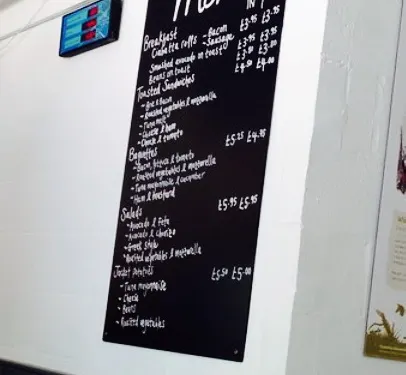 Menu
IN
Breakfast £3.95
Ciabatta rolls - Bacon £3.95 £3.95
- Sausage £3.95
Smashed avocado on toast
Beans on toast £4.50 £4.00
Toasted Sandwiches
- Brie & Bacon
- Roasted vegetables & mozzarella
- Tuna melt
- Cheese & ham
- Cheese & tomato
Baguettes £5.25 £4.95
- Bacon, lettuce & tomato
- Roasted vegetables & mozzarella
- Tuna mayonnaise & cucumber
- Ham & mustard
Salads £5.95 £5.95
- Avocado & Feta
- Avocado & Chorizo
- Greek style
- Roasted vegetables & mozzarella
Jacket potatoes £5.50 £5.00
- Tuna mayonnaise
- Cheese
- Beans
- Roasted vegetables